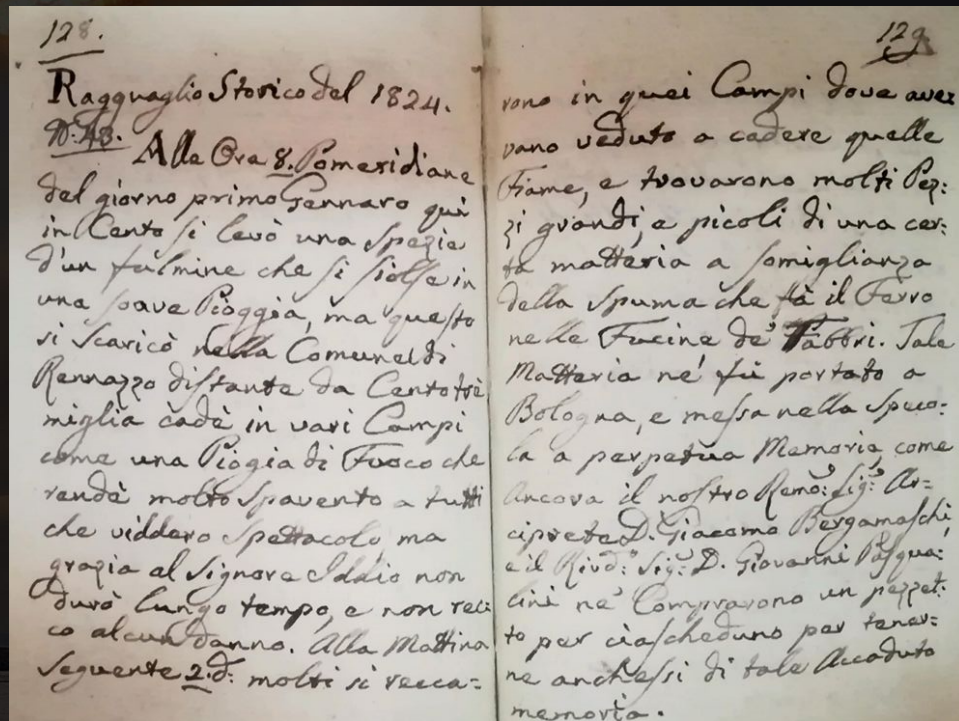 128.
Ragguaglio Storico del 1824.
N. 48.
Alle Ore 8. Pomeridiane
del giorno primo Gennaro qui
in Cento si levò una spezie
d'un fulmine che si siolse in
una soave Pioggia, ma questo
si scaricò nella Comune di
Rennazzo distante da Cento trè
miglia cadè in vari Campi
come una Piogia di Fuoco che
rendè molto spavento a tutti
che viddero spettacolo, ma
grazia al Signore Iddio non
durò lungo tempo, e non rec:
co alcun danno. Alla Mattina
Seguente 2.d: molti si recca=
129
rono in quei Campi dove avez
vano veduto a cadere quelle
Fiame, e trovarono molti Pez:
zi grandi, e picoli di una cer:
ta matteria a somiglianza
della spuma che fà il Ferro
nelle Fucine de' Fabbri. Tale
Matteria ne' fù portato a
Bologna, e messa nella Speco:
la a perpetua Memoria, come
Ancora il nostro Remo: Sig: Ar=
ciprete D. Giacomo Bergamaschi,
e il Rivd: Sig: D. Giovanni Pasqua:
lini ne' Comprarono un pezzet:
to per ciascheduno per tener=
ne anch'essi di tale Accaduto
memoria.